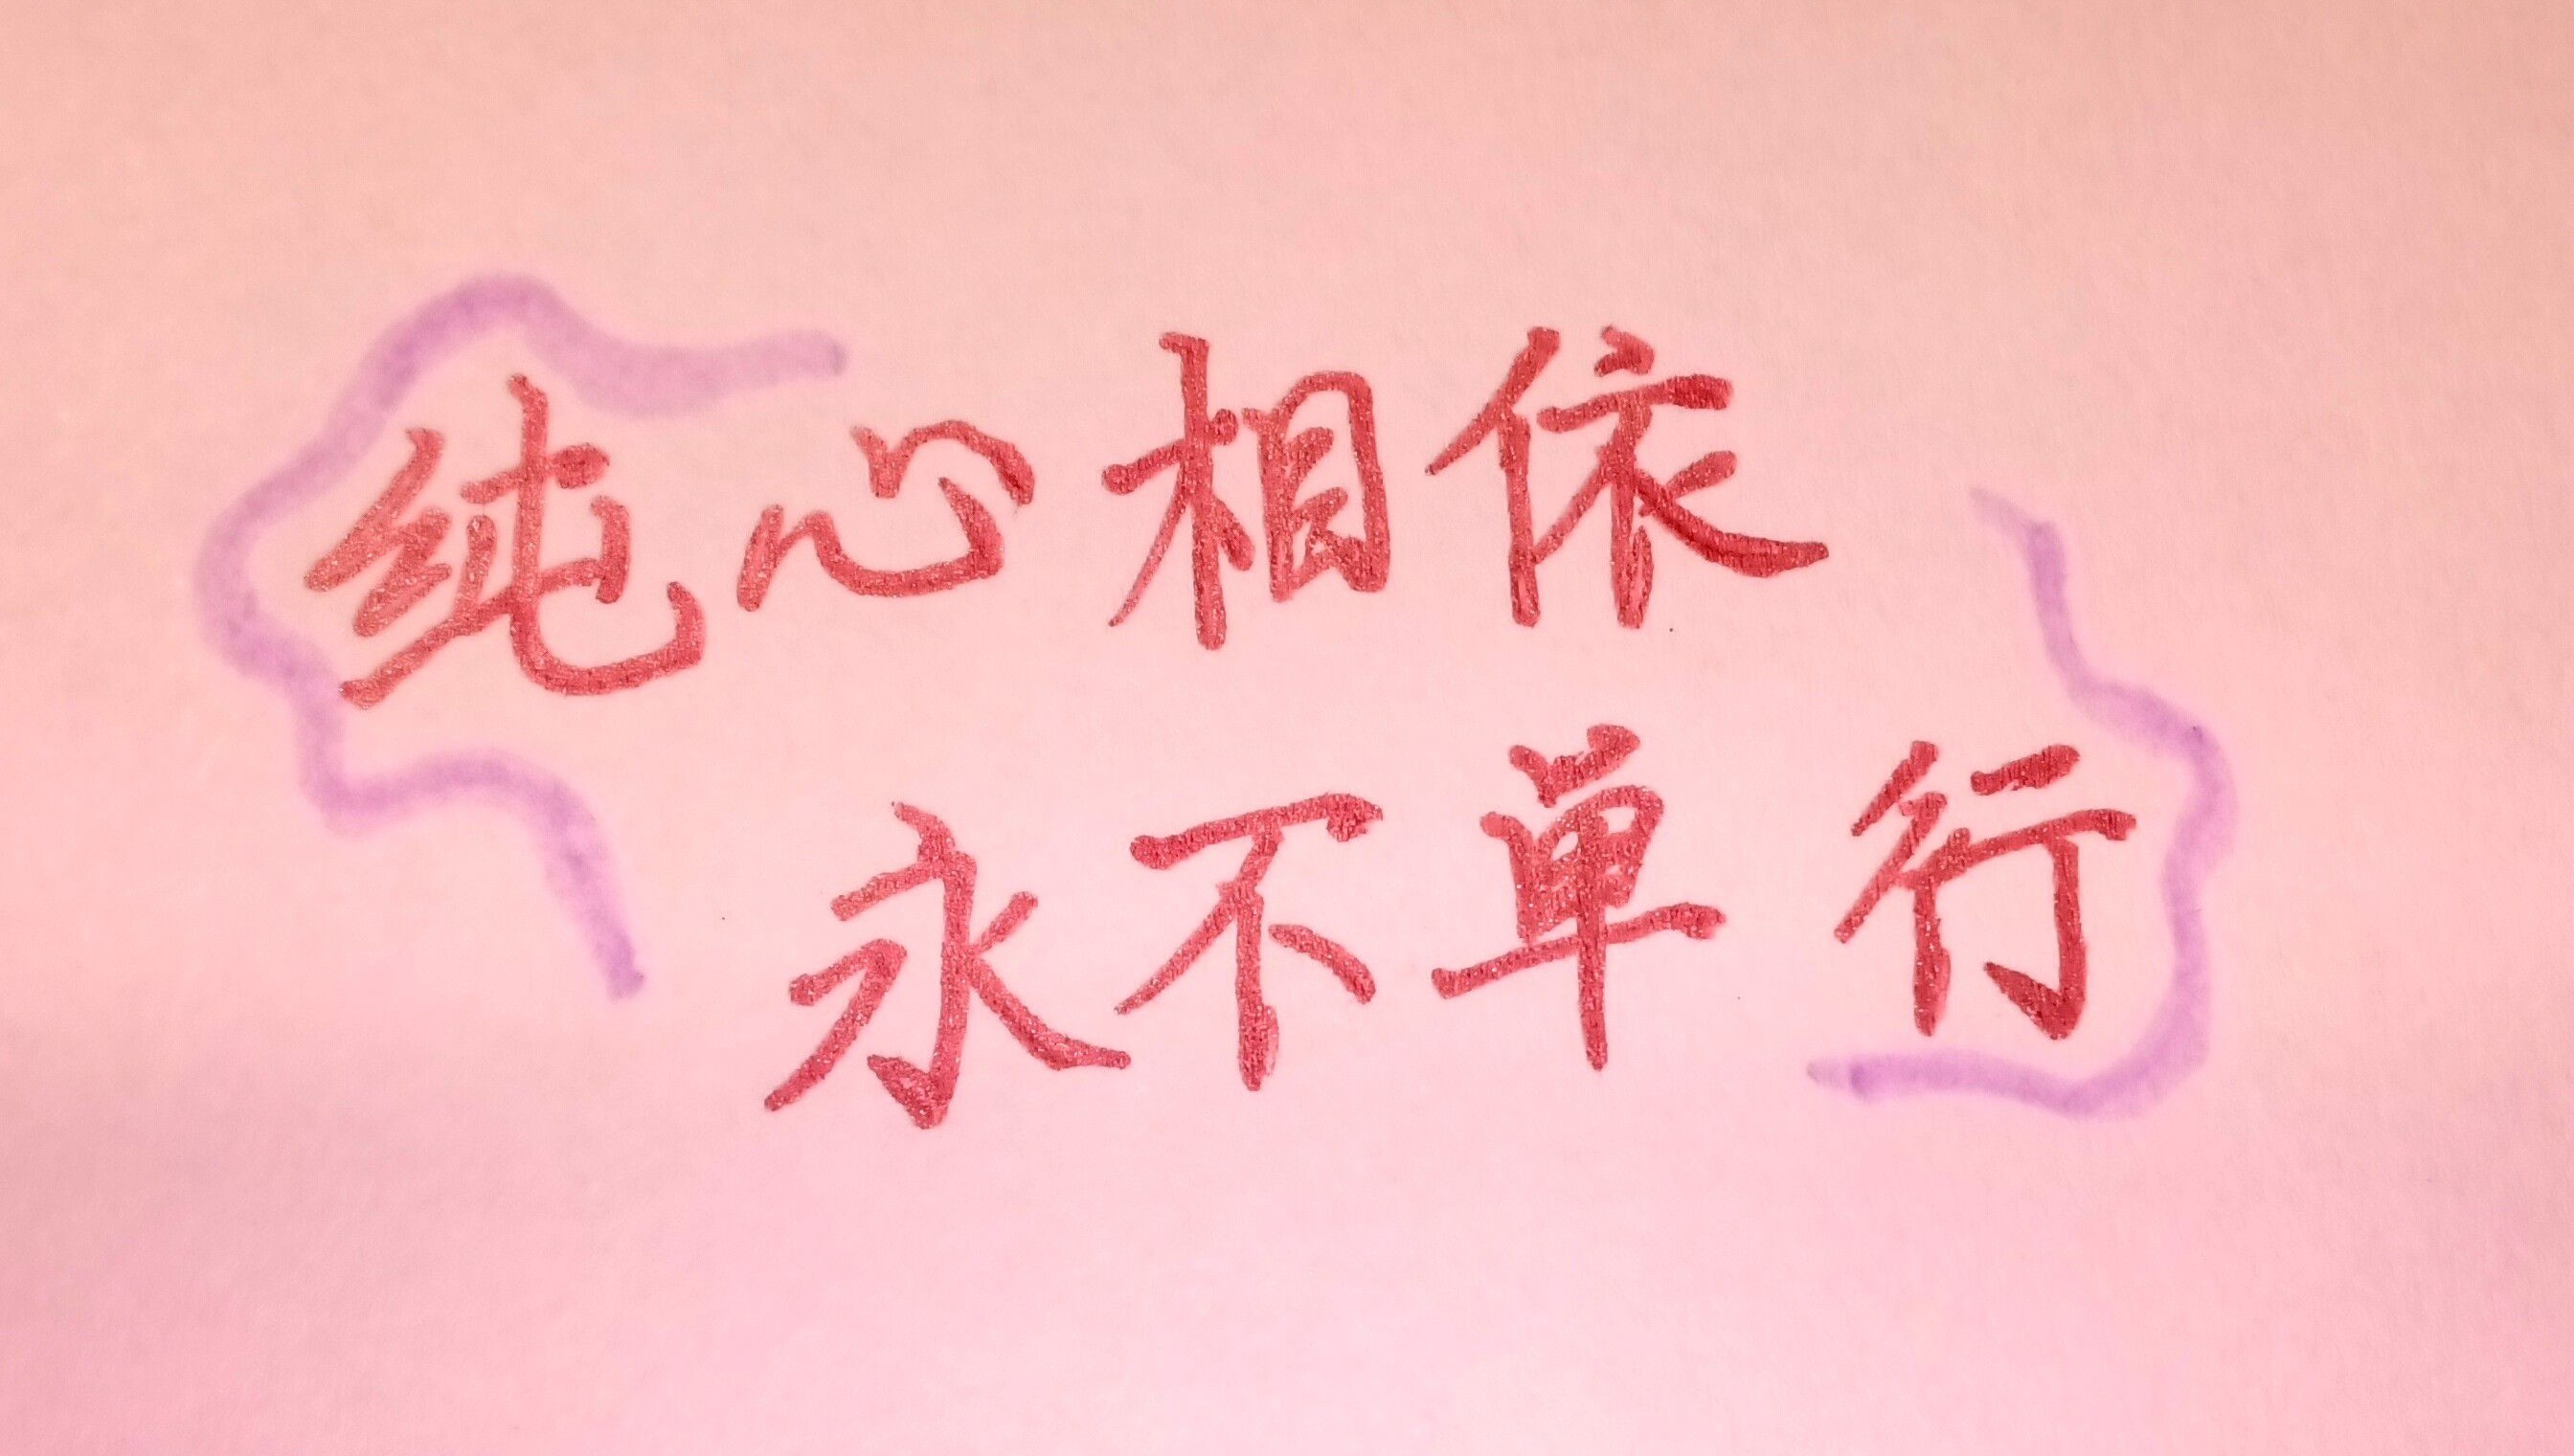 纯心相依
永不单行